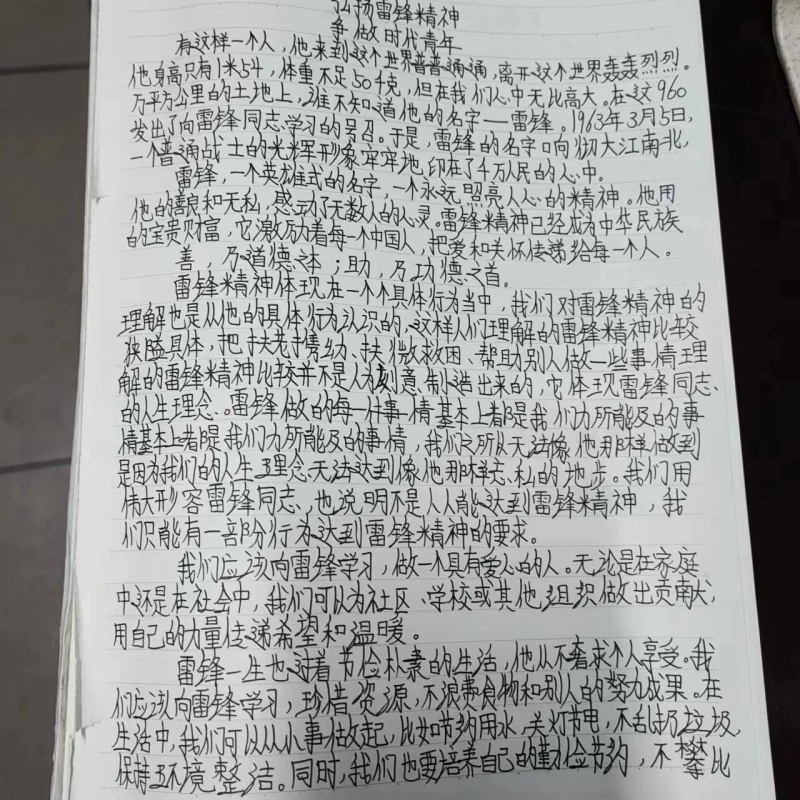 弘扬雷锋精神
争做时代青年
有这样一个人，他来到这个世界普普通通，离开这个世界轰轰烈烈。
他身高只有1米54，体重不足50千克，但在我们心中无比高大。在这960
万平方公里的土地上，谁不知道他的名字——雷锋。1963年3月5日，
发出了向雷锋同志学习的号召。于是，雷锋的名字响彻大江南北，
一个普通战士的光辉形象牢牢地印在了千万人民的心中。
雷锋，一个英雄式的名字，一个永远照亮人心的精神。他用
他的善良和无私，感动了无数人的心灵。雷锋精神已经成为中华民族
的宝贵财富，它激励着每一个中国人，把爱和关怀传递给每一个人。
善，乃道德之本；助，乃功德之首。
雷锋精神体现在一个个具体行为当中，我们对雷锋精神的
理解也是从他的具体行为认识的，这样人们理解的雷锋精神比较
狭隘具体，把扶老携幼、扶微救困、帮助别人做一些事情理
解的雷锋精神比较并不是人为刻意制造出来的，它体现雷锋同志
的人生理念。雷锋做的每一件事情基本上都是我们力所能及的事
情基本上都是我们力所能及的事情，我们之所以无法像他那样做到
是因为我们的人生理念无法达到像他那样无私的地步。我们用
伟大形容雷锋同志，也说明不是人人能达到雷锋精神，我
们只能有一部分行为达到雷锋精神的要求。
我们应该向雷锋学习，做一个具有爱心的人。无论是在家庭
中还是在社会中，我们可以为社区、学校或其他组织做出贡献，
用自己的力量传递希望和温暖。
雷锋一生也过着节俭朴素的生活，他从不奢求个人享受。我
们应该向雷锋学习，珍惜资源，不浪费食物和别人的努力成果。在
生活中，我们可以从小事做起，比如节约用水，关灯节电，不乱扔垃圾
保持环境整洁。同时，我们也要培养自己的勤俭节约，不攀比